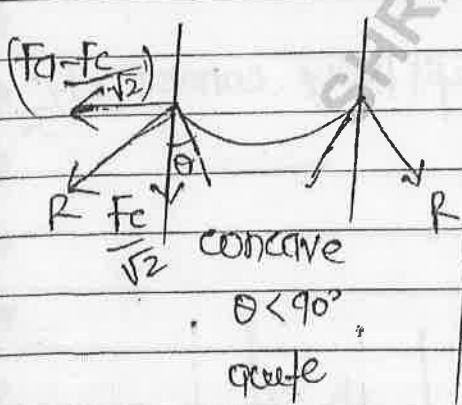 (Fa-Fc/√2)
SHRI
θ
R Fc/√2 R
concave
θ<90°
acute